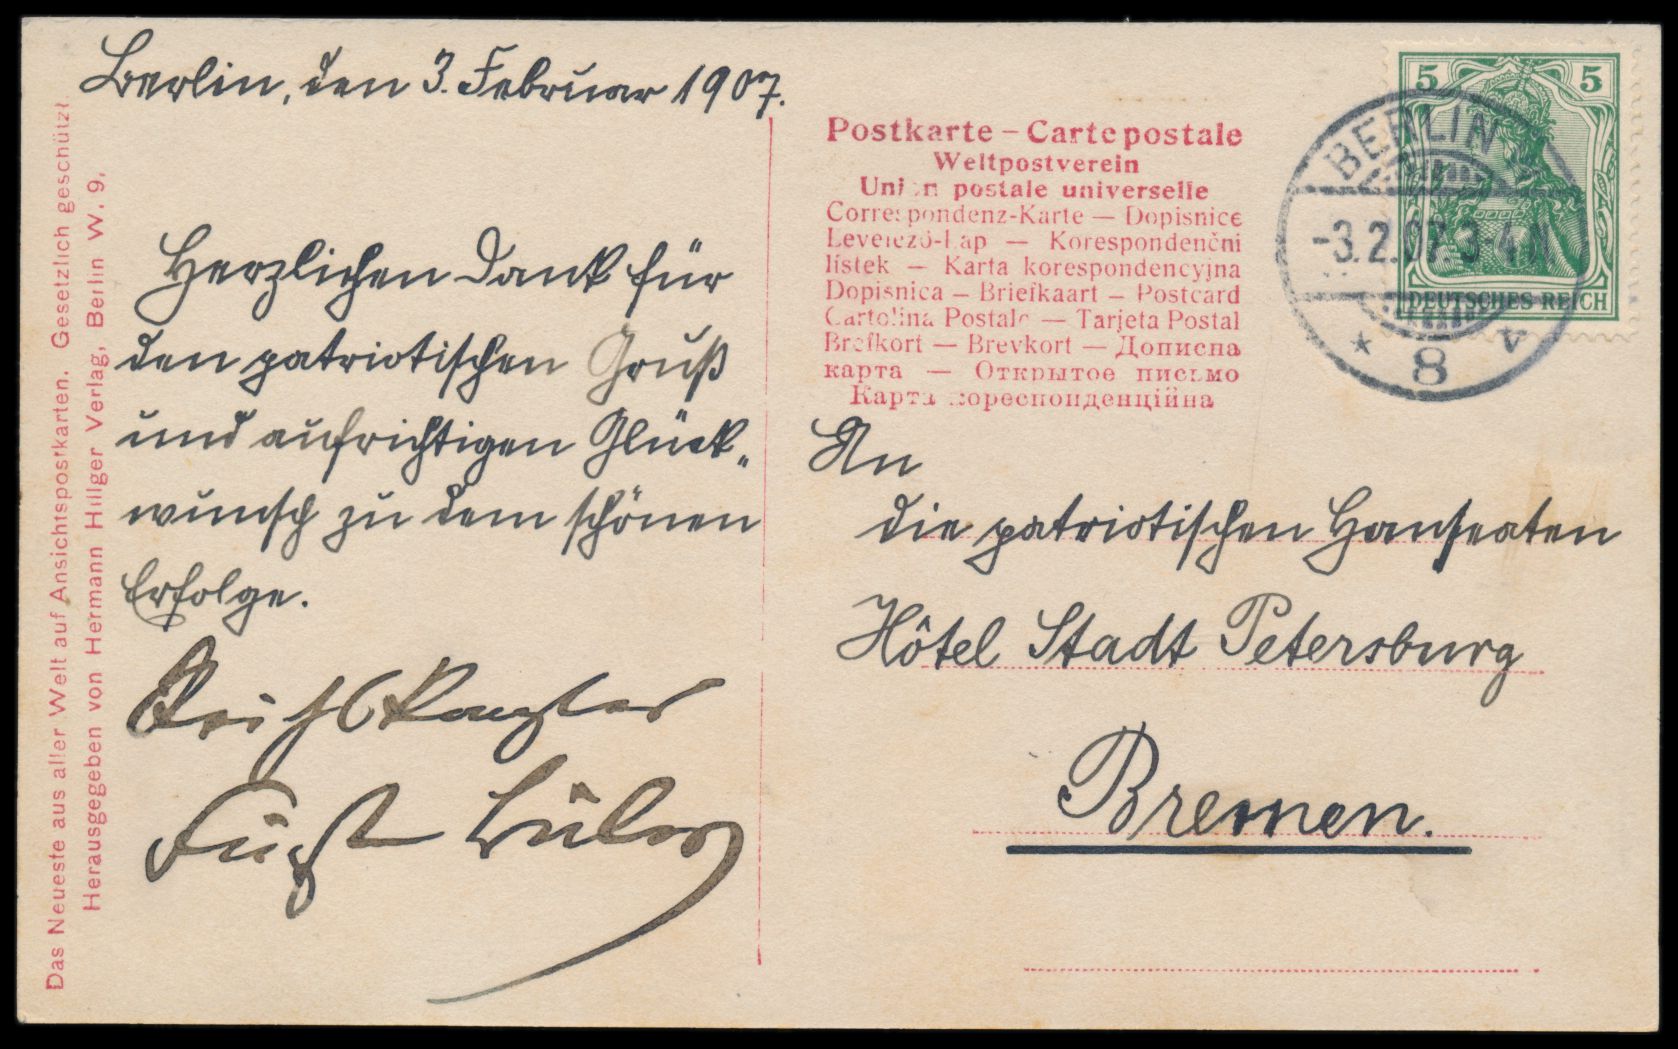 Berlin, den 3. Februar 1907.
Herzlichen Dank für
den patriotischen Gruß
und aufrichtigen Glück-
wunsch zu dem schönen
Erfolge.
Reichskanzler
Fürst Bülow
Das Neueste aus aller Welt auf Ansichtspostkarten. Gesetzlich geschützt.
Herausgegeben von Hermann Hillger Verlag, Berlin W. 9.
Postkarte – Carte postale
Weltpostverein
Union postale universelle
Correspondenz-Karte — Dopisnice
Levelező-Lap — Korespondenční
lístek — Karta korespondencyjna
Dopisnica — Briefkaart — Postcard
Cartolina Postale — Tarjeta Postal
Brefkort — Brevkort — Дописна
карта — Открытое письмо
Карта кореспонденційна
5 5
DEUTSCHES REICH
BERLIN
-3.2.07.3-4N
* 8
An
die patriotischen Hanseaten
Hôtel Stadt Petersburg
Bremen.